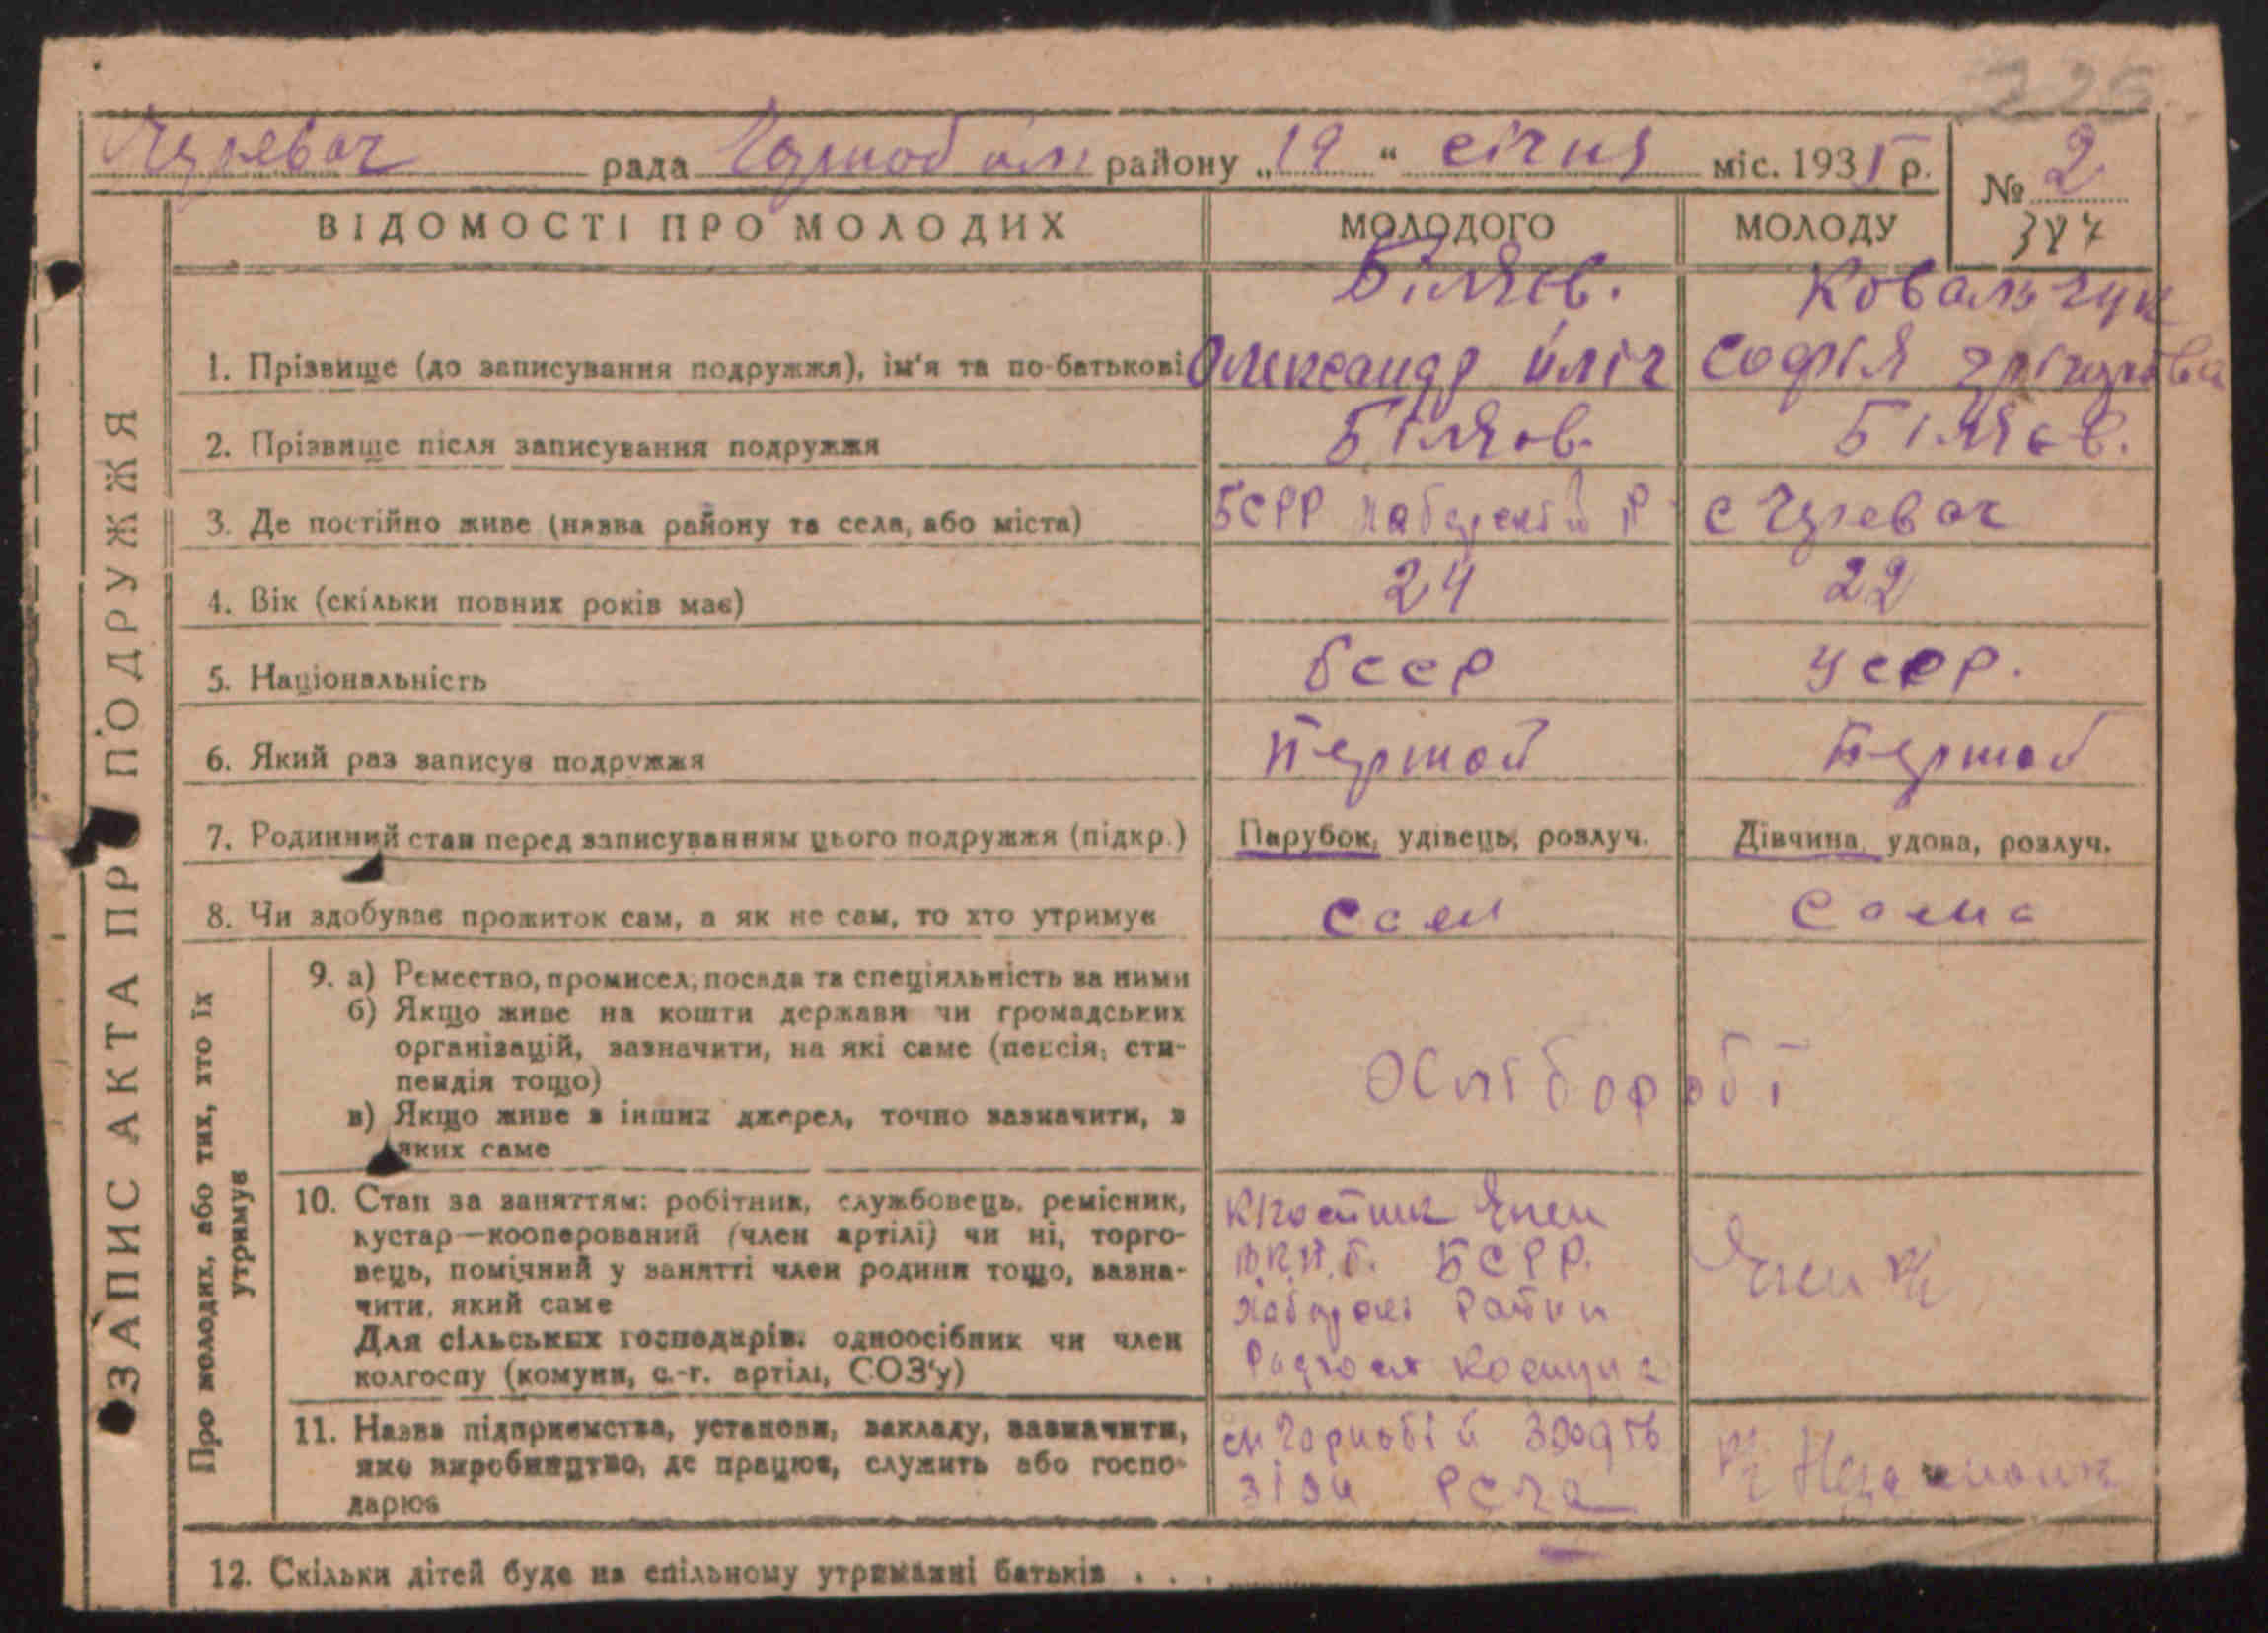 226
рада районру „19“ січня міс. 1935 р.
№ 2
387
ВІДОМОСТІ ПРО МОЛОДИХ МОЛОДОГО МОЛОДУ
ЗАПИС АКТА ПРО ПОДРУЖЖЯ
Біляєв. Ковальчук
1. Прізвище (до записування подружжя), ім'я та по-батькові Олександр Иліч Софія
2. Прізвище після записування подружжя Біляєв. Біляєв.
3. Де постійно живе (назва району та села, або міста) БСРР с
4. Вік (скільки повних років має) 24 22
5. Національність бсср усрр.
6. Який раз записує подружжя Першой Першой
7. Родинний стан перед записуванням цього подружжя (підкр.) Парубок, удівець, розлуч. Дівчина, удова, розлуч.
8. Чи здобуває прожиток сам, а як не сам, то хто утримує сам сама
Про молодих, або тих, хто їх утримує
9. а) Ремество, промисел, посада та спеціяльність за ними
б) Якщо живе на кошти держави чи громадських
організацій, зазначити, на які саме (пенсія, сти-
пендія тощо)
в) Якщо живе з інших джерел, точно зазначити, з
яких саме
Хлібороб
10. Стан за заняттям: робітник, службовець, ремісник,
кустар—кооперований (член артілі) чи ні, торго-
вець, помічний у занятті член родини тощо, зазна-
чити, який саме
Для сільських господарів, одноосібник чи член
колгоспу (комуни, с.-г. артілі, СОЗ'у)
Член
БСРР.
Член
11. Назва підприємства, установи, закладу, зазначити,
яке виробництво, де працює, служить або госпо-
дарює
12. Скільки дітей буде на спільному утриманні батьків . . .